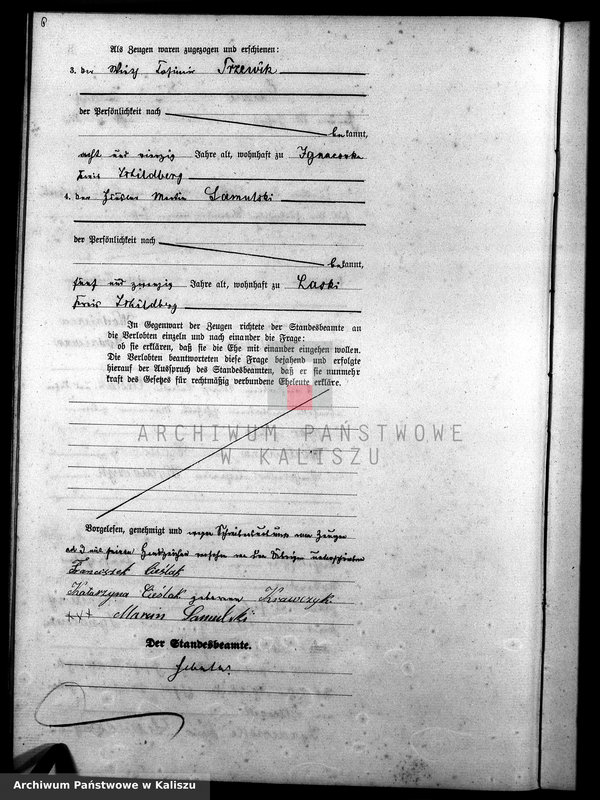 6
Als Zeugen waren zugezogen und erschienen:
3. der Wirth Casimir Przewik
der Persönlichkeit nach
bekannt,
acht und vierzig Jahre alt, wohnhaft zu Ignacowka
Kreis Schildberg
4. der Häusler Martin Samulski
der Persönlichkeit nach
bekannt,
fünf und zwanzig Jahre alt, wohnhaft zu Laski
Kreis Schildberg
In Gegenwart der Zeugen richtete der Standesbeamte an
die Verlobten einzeln und nach einander die Frage:
ob sie erklären, daß sie die Ehe mit einander eingehen wollen.
Die Verlobten beantworteten diese Frage bejahend und erfolgte
hierauf der Ausspruch des Standesbeamten, daß er sie nunmehr
kraft des Gesetzes für rechtmäßig verbundene Eheleute erkläre.
ARCHIWUM PAŃSTWOWE
W KALISZU
Vorgelesen, genehmigt und wegen Schreibensunkunde vom Zeugen
ad 3 mit seinem Handzeichen versehen von den Übrigen unterschrieben
Franciszek Cieślak
Katarzyna Cieślak geborene Krawczyk
+++ Marcin Samulski
Der Standesbeamte.
Archiwum Państwowe w Kaliszu